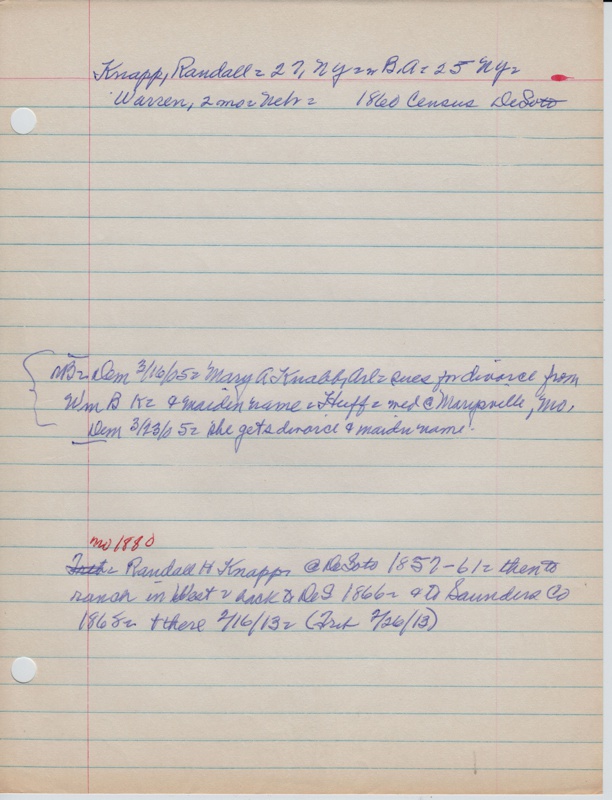 Knapp, Randall = 27, NY = m B.A = 25 NY =
Warren, 2 mo = Nebr = 1860 Census DeSoto
NB = Dem 3/16/05 = Mary A Knabb, Arl = sues for divorce from
Wm B K = & maiden name = Huff = md @ Marysville, Mo.
Dem 3/23/05 = she gets divorce & maidn name.
no 1880
= Randall H Knapp @ DeSoto 1857-61 = then to
ranch in West = back to DeS 1866 = & to Saunders Co
1868 = + there 2/16/13 = (Trib 2/26/13)